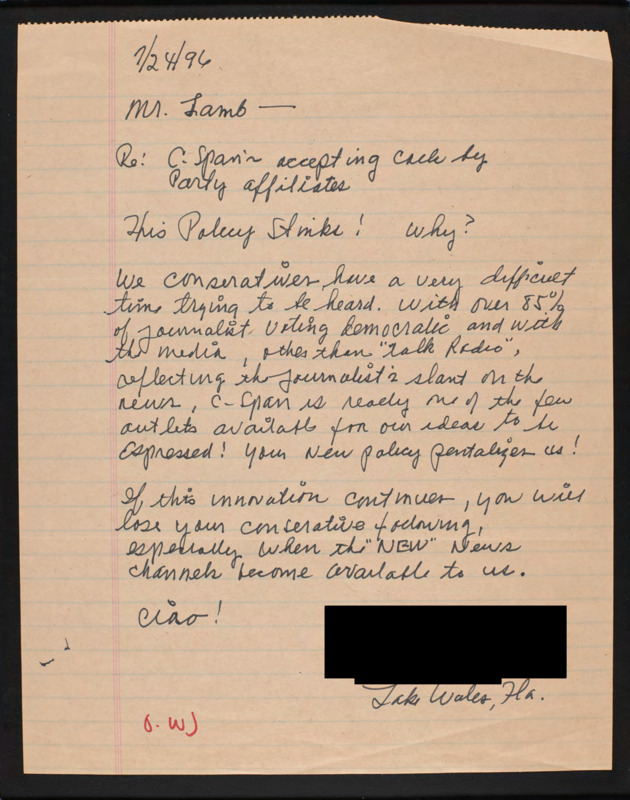 7/24/96
Mr. Lamb —
Re: C-Span's accepting calls by
Party affiliates
This Policy Stinks! Why?
We conseratives have a very difficult
time trying to be heard. With over 85%
of journalist voting democratic and with
the media, other than "Talk Radio",
reflecting the journalist's slant on the
news, C-Span is really one of the few
outlets available for our ideas to be
Expressed! Your New policy pentalizes us!
If this innovation continues, you will
lose your conserative following,
especially when the "NEW" News
channels become available to us.
Ciao!
Lake Wales, Fla.